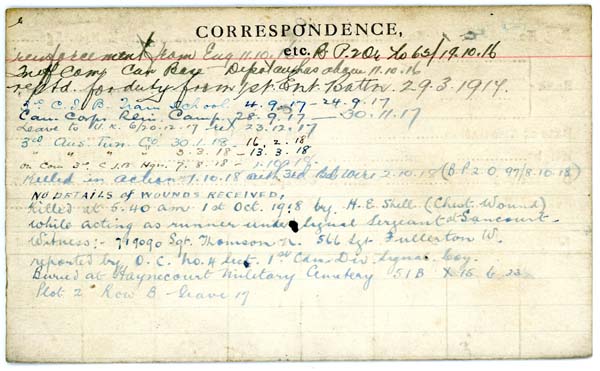 CORRESPONDENCE,
etc.
reinforcement from Eng 11.10.16 B.P.2 Or No 63/19.10.16
Comp Can Base Depot 11.10.16
reptd. for duty from 1st. Ent. Battn. 29.3.1917.
C.I.B. Train School 4.9.17 - 24.9.17
Can. Corps Rein. Camp 28.9.17 - 30.11.17
Leave to U.K. 6/20.12.17 ret 23.12.17
3rd Aus. Tun. Co 30.1.18 - 16.2.18
" " " " 3.3.18 - 13.3.18
on Com 3rd C.I.B. Hqrs. 7.8.18 -
Killed in action 1.10.18 auth 3rd Bde Wire 2.10.18 (B.P.2.O. 97/8.10.18)
NO DETAILS OF WOUNDS RECEIVED;
Killed at 5.40 am 1st Oct. 1918 by H.E. Shell (Chest Wound)
while acting as runner under Signal Sergeant at Sancourt.
Witness:- 719090 Sgt. Thomson R. 566 Sgt Fullerton W.
reported by O.C. No. 4 Sect. 1st Can. Div. Signal Coy.
Buried at Haynecourt Military Cemetery 51B X 15 b 23
Plot 2 Row B - Grave 17